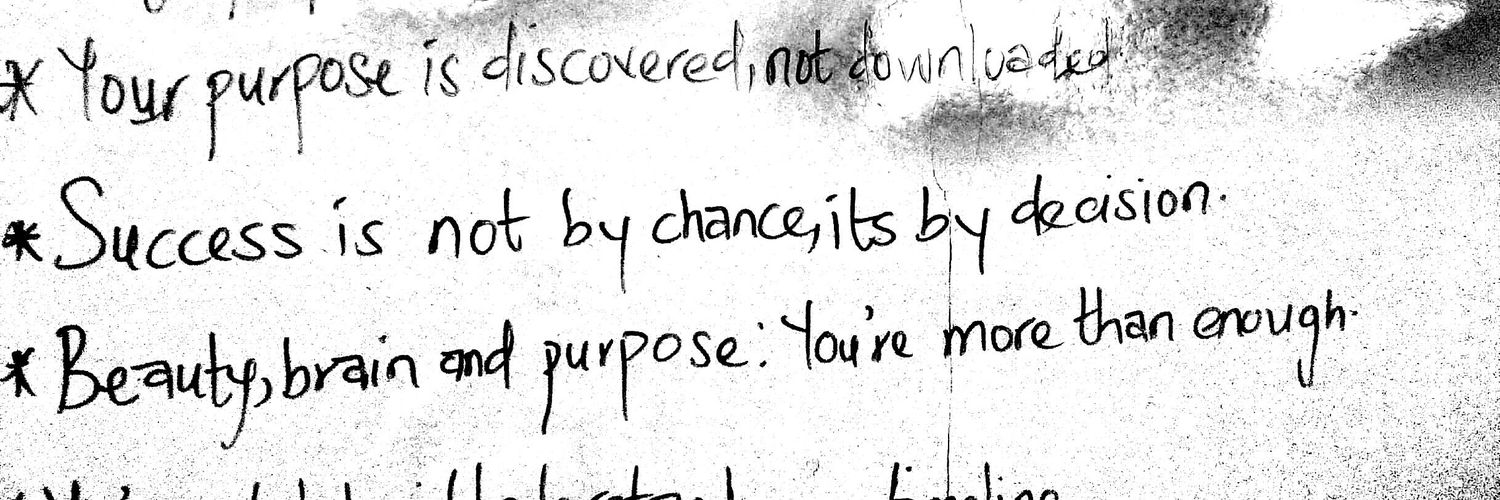 * Your purpose is discovered, not downloaded
* Success is not by chance, its by decision.
* Beauty, brain and purpose: You're more than enough.